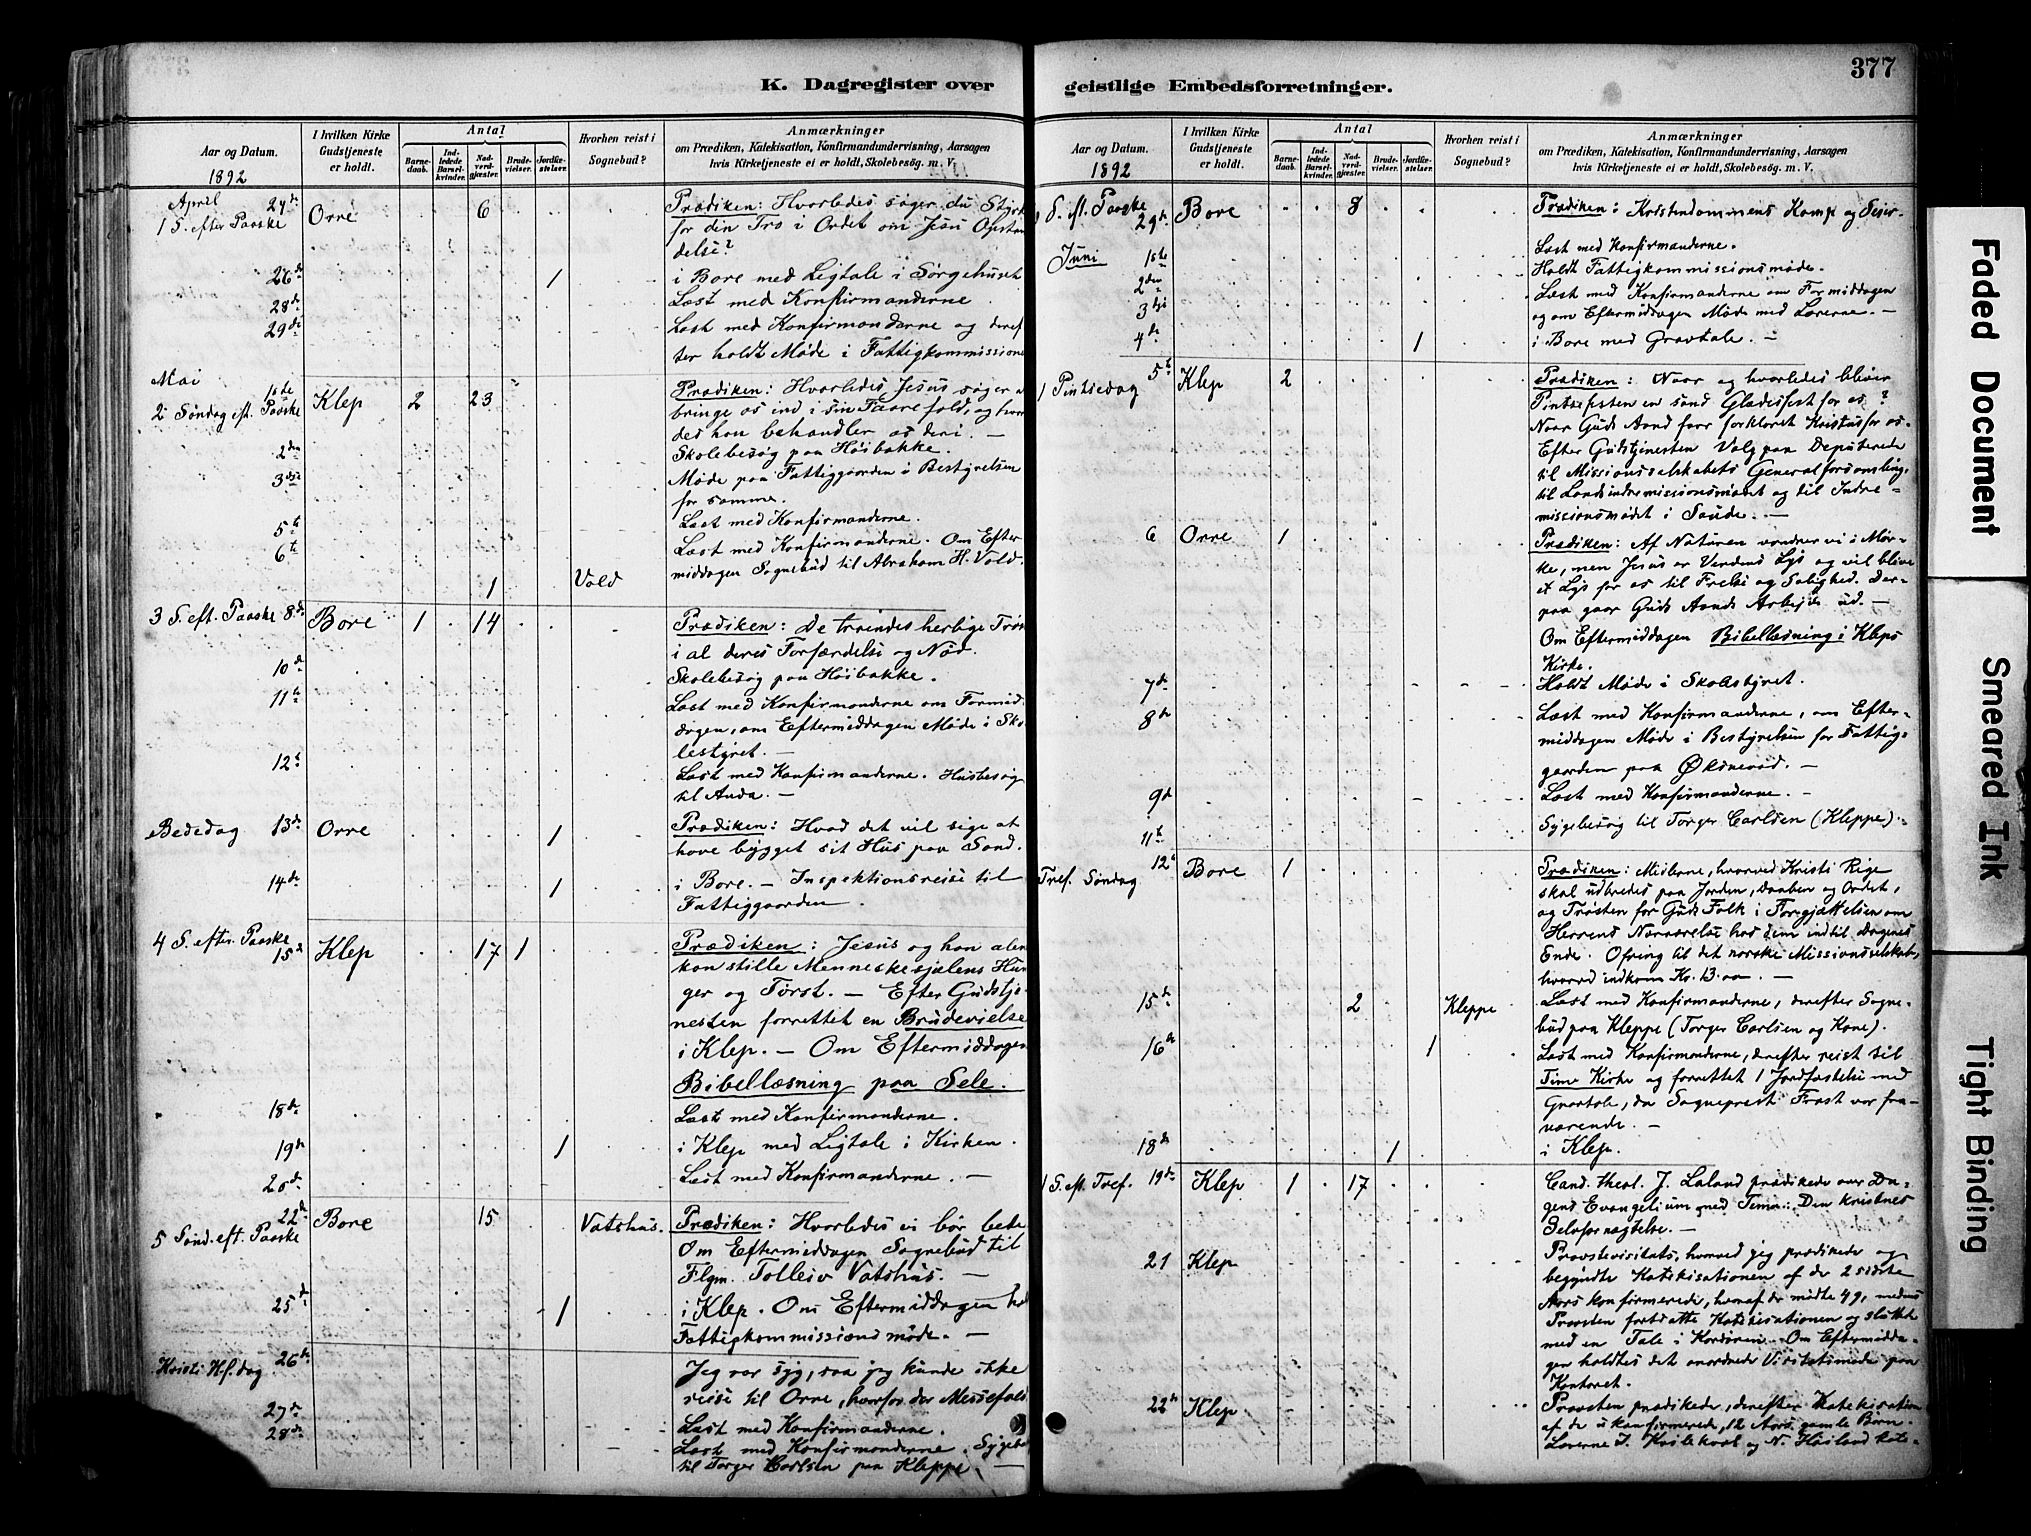 377
K. Dagregister over
geistlige Embedsforretninger.
Aar og Datum.
1892
I hvilken Kirke Gudstjeneste er holdt.
Antal
Barnedaab.
Indledede Barselkvinder.
Nadverdgjæster.
Brudevielser.
Jordfæstelser.
Hvorhen reist i Sognebud?
Anmærkninger
om Prædiken, Katekisation, Konfirmandundervisning, Aarsagen
hvis Kirketjeneste ei er holdt, Skolebesøg. m. V.
April 24de Orre 6 Prædiken: Hvorledes søger du Styrke
1 S. efter Paaske for din Tro i Ordet om Jesu Opstan
delse?
26de 1 i Bore med Ligtale i Sørgehuset
28de Læst med Konfirmanderne
29de Læst med Konfirmanderne og deref
ter holdt Møde i Fattigkommissione
Mai
1ste Klep 2 23 Prædiken: Hvorledes Jesus søger a
2 Søndag eft. Paaske bringe os ind i sin Faarefold, og hvor
des han behandler os deri. —
2den Skolebesøg paa Høibakke.
3die Møde paa Fattiggaarden i Bestyrelsen
for samme.
5te Læst med Konfirmanderne.
6te Læst med Konfirmanderne. Om Efter
1 Vold middagen Sognebud til Abraham H. Vold.
3 S. eft. Paaske 8de Bore 1 14 Prædiken: De troendes herlige Trøst
i al deres Forfærdelse og Nød.
10de Skolebesøg paa Høibakke.
11te Læst med Konfirmanderne om Formid
dagen, om Eftermiddagen Møde i Sko
lestyret. —
12te Læst med Konfirmanderne. Husbesøg
til Anda. —
Bededag 13de Orre 1 Prædiken: Hvad det vil sige at
have bygget sit Hus paa Sand.
14de 1 i Bore. — Inspektionsreise til
Fattiggaarden.
4 S. efter. Paaske 15de Klep 17 1 Prædiken: Jesus og han alen
kan stille Menneskesjælens Hun
ger og Tørst. — Efter Gudstje
nesten forrettet en Brudevielse
i Klep. — Om Eftermiddagen
Bibellæsning paa Sele.
18de Læst med Konfirmanderne.
19de 1 i Klep med Ligtale i Kirken.
20de Læst med Konfirmanderne. —
22de Bore 15 Vatshus. Prædiken: Hvorledes vi bør bede
5 Sønd. eft. Paaske Om Eftermiddagen Sognebud til
Flgm. Tolleiv Vatshus. —
25de 1 i Klep. Om Eftermiddagen hol
Fattigkommissionsmøde. —
Kristi Hf. dag 26de Jeg var syg, saa jeg kunde ikke
reise til Orre, hvorfor der Messefald
27de Læst med Konfirmanderne.
28de Læst med Konfirmanderne. Sygebes
til Torger Carlsen paa Kleppe. —
Aar og Datum.
1892
I hvilken Kirke Gudstjeneste er holdt.
Antal
Barnedaab.
Indledede Barselkvinder.
Nadverdgjæster.
Brudevielser.
Jordfæstelser.
Hvorhen reist i Sognebud?
Anmærkninger
om Prædiken, Katekisation, Konfirmandundervisning, Aarsagen
hvis Kirketjeneste ei er holdt, Skolebesøg. m. V.
S. eft. Paaske 29de Bore 8 Prædiken: Kristendommens Kamp og Seier.
Læst med Konfirmanderne.
Juni 1ste Holdt Fattigkommissionsmøde.
2den Læst med Konfirmanderne om Formiddagen
3die og om Eftermiddagen Møde med Lærerne. —
4de 1 i Bore med Gravtale. —
1 Pintsedag 5te Klep 2 Prædiken: Naar og hvorledes bliver
Pintsefesten en sand Glædesfest for os?
Naar Guds Aand faar forklaret Kristus for os.
Efter Gudstjenesten Valg paa Deputerede
til Missionsselskabets Generalforsamling,
til Landsindremissionsmødet og til Indre-
missionsmødet i Saude. —
6 Orre 1 Prædiken: Af Naturen vandrer vi i Mør-
ke, men Jesus er Verdens Lys og vil blive
et Lys for os til Frelse og Salighed. Der-
paa gaar Guds Aands Arbejde ud. —
Om Eftermiddagen Bibellæsning i Kleps
Kirke.
7de Holdt Møde i Skolestyret.
8de Læst med Konfirmanderne, om Efter-
middagen Møde i Bestyrelsen for Fattig-
gaarden paa Øksnevad. —
9de Læst med Konfirmanderne. —
11te Sygebesøg til Torger Carlsen (Kleppe).
Tref. Søndag 12te Bore 1 Prædiken: Midlerne, hvorved Kristi Rige
skal udbredes paa Jorden, Daaben og Ordet,
og Trøsten for Guds Folk i Forgjættelsen om
Herrens Nærværelse hos dem indtil Dagenes
Ende. Ofring til det norske Missionsselskab,
hvorved indkom Kr. 13.00. —
15de 2 Kleppe Læst med Konfirmanderne, derefter Sogne-
bud paa Kleppe (Torger Carlsen og Kone).
16de 1 Læst med Konfirmanderne, derefter reist til
Time Kirke og forrettet 1 Jordfæstelse med
Gravtale, da Sogneprest Frost var fra-
værende. —
18de 1 i Klep.
1 S. eft. Tref. 19de Klep 1 17 Cand. theol. J. Laland prædikede over Da-
gens Evangelium med Tema: Den kristnes
Selvfornægtelse. —
21 Klep Provstevisitats, hvorved jeg prædikede og
begyndte Katekisationen af de 2 sidste
Aars konfirmerede, hvoraf der mødte 49, medens
Provsten fortsatte Katekisationen og sluttet
med en Tale i Kordøren. Om Eftermidda-
gen holdtes det anordnede Visitatsmøde paa
Kontoret.
22de Klep. Provsten prædikede, derefter Katekisation
af de ukonfirmerede, 12 Aars gamle Børn.
Lærerne og N. Høiland kate-
Faded Document
Smeared Ink
Tight Binding